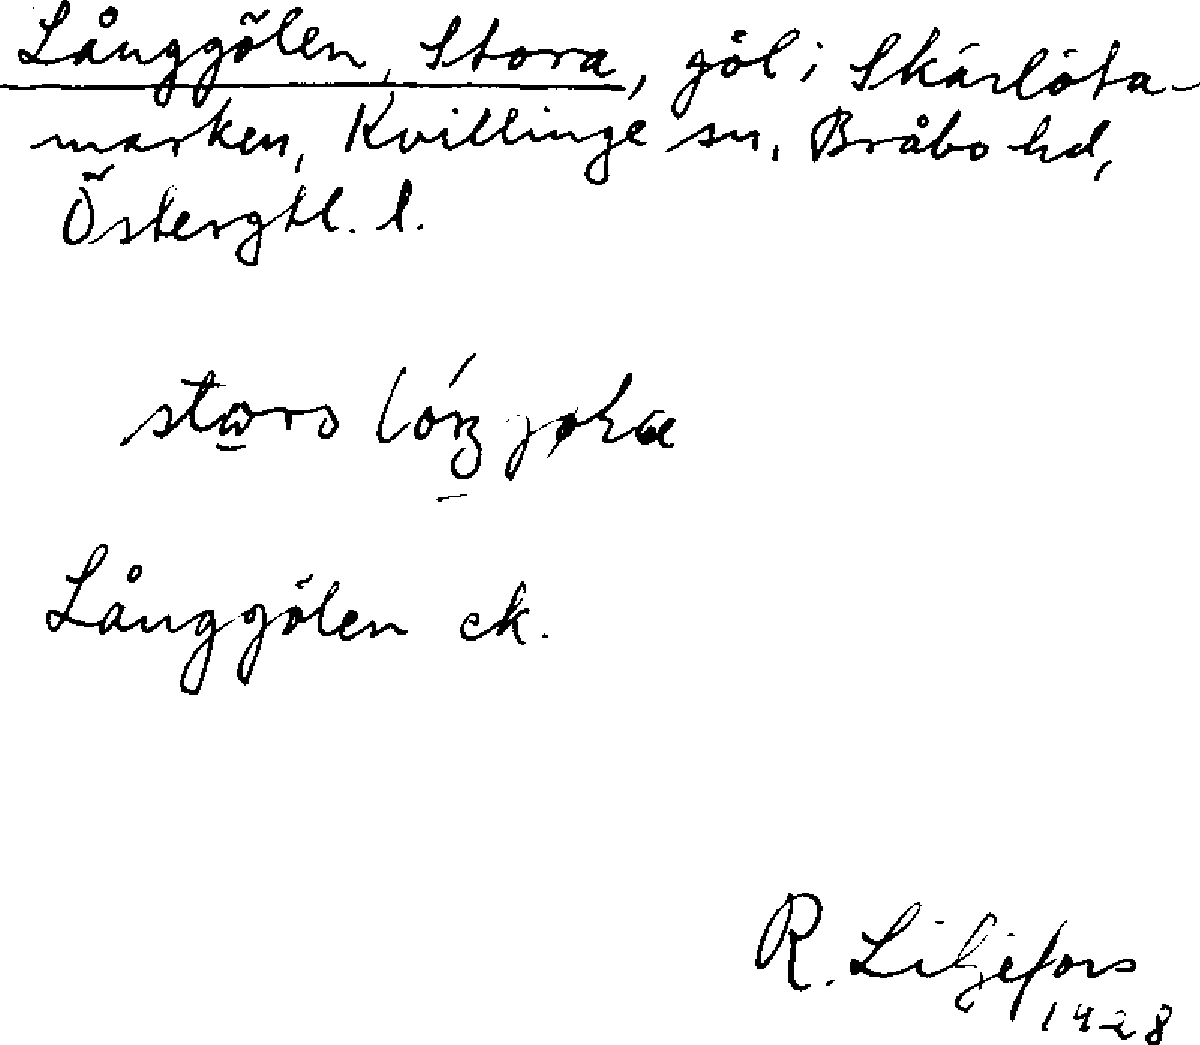 Långgölen, Stora, göl i Skärlöta-
marken, Kvillinge sn, Bråbo hd,
Östergtl. l.
Långgölen ek.
R. Liljefors
1928